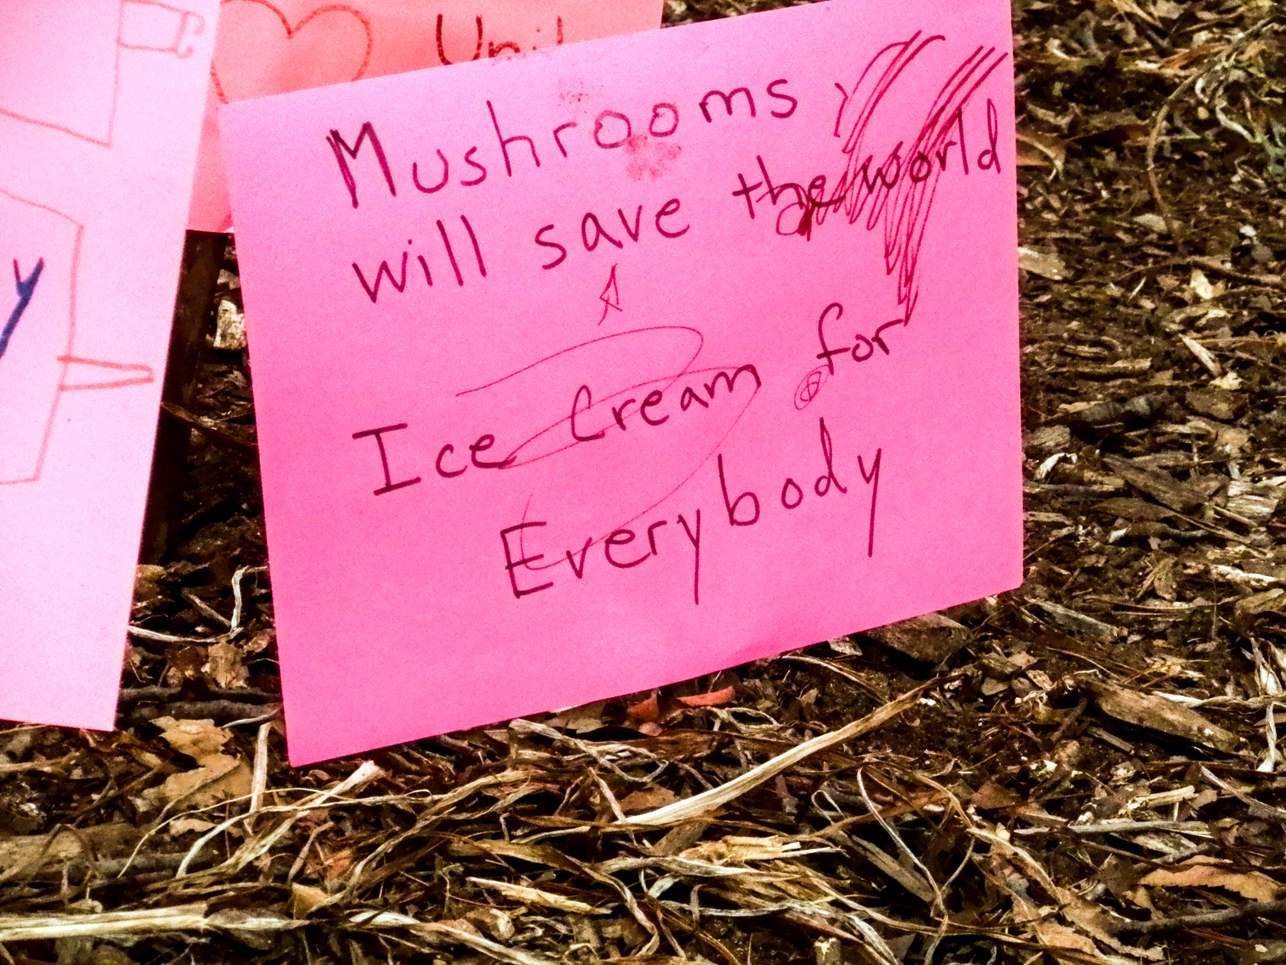 Mushrooms
will save the world
Ice Cream for
Everybody
y